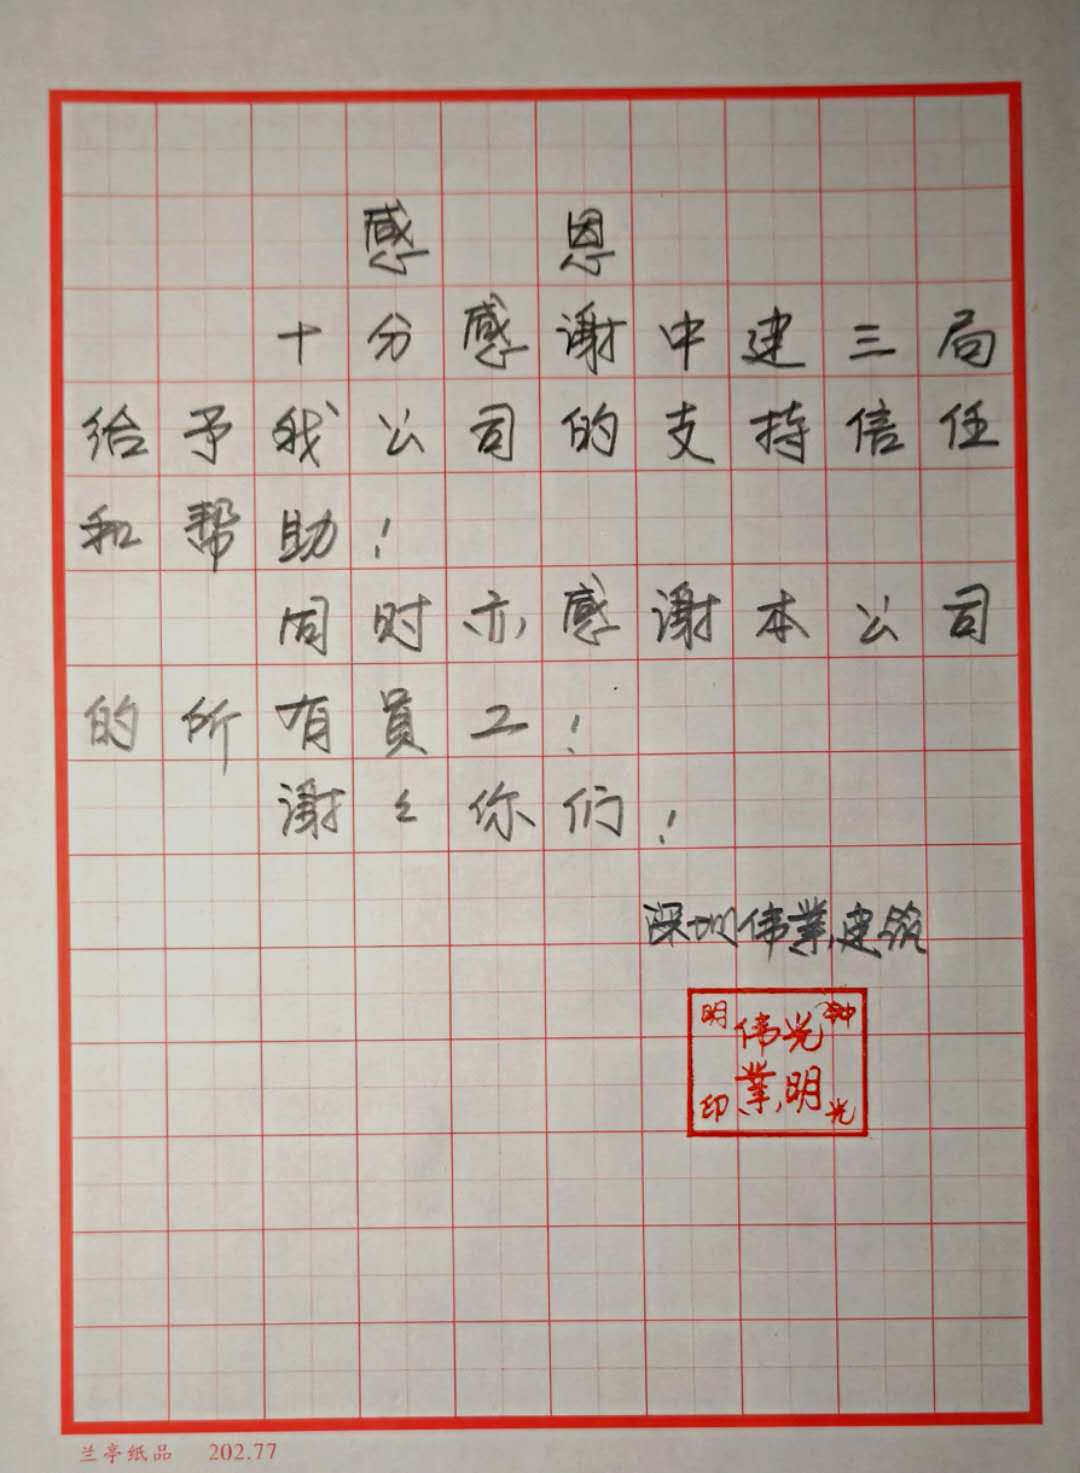 感 恩
十分感谢中建三局
给予我公司的支持信任
和帮助！
同时亦感谢本公司
的所有員工！
谢々你们！
深圳伟業建筑
明 伟光 钟
印 業明 光
兰亭纸品 202.77